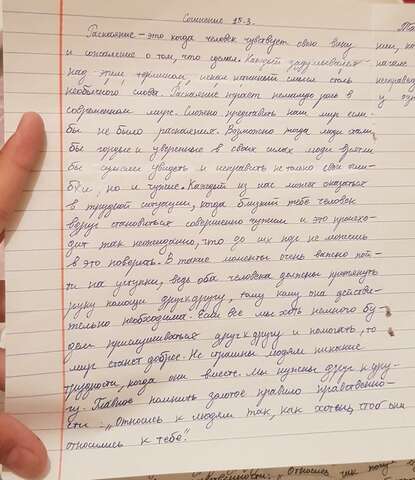 Сочинение 15.3.
Раскаяние – это когда человек чувствует свою вину
и сожаление о том, что сделал. Каждый задумывался
над этим термином, искал
необъятного слова. Раскаяние играет немалую роль в
современном мире. Сложно представить наш мир, если
бы не было раскаяния. Возможно тогда люди стали
бы гордые и уверенные в своих силах люди
бы сумели увидеть и исправить не только свои оши-
бки, но и чужие. Каждый из нас может оказаться
в трудной ситуации, когда близкие тебе человек
вдруг становиться совершенно чужим и это происхо-
дит так неожиданно, что до их пор не можешь
в это поверить. В такие моменты очень важно пой-
ти на уступки, ведь оба человека должны протянуть
руку помощи друг другу, тому кому она действи-
тельно необходима. Если все мы хоть немного бу-
дем прислушиваться друг к другу и помогать, то
мир станет добрее. Не страшны людям никакие
трудности, когда они вместе. Мы нужны друг к дру-
гу. Главное помнить золотое правило нравственно-
сти: „Относись к людям так, как хочешь, чтоб они
относились к тебе".